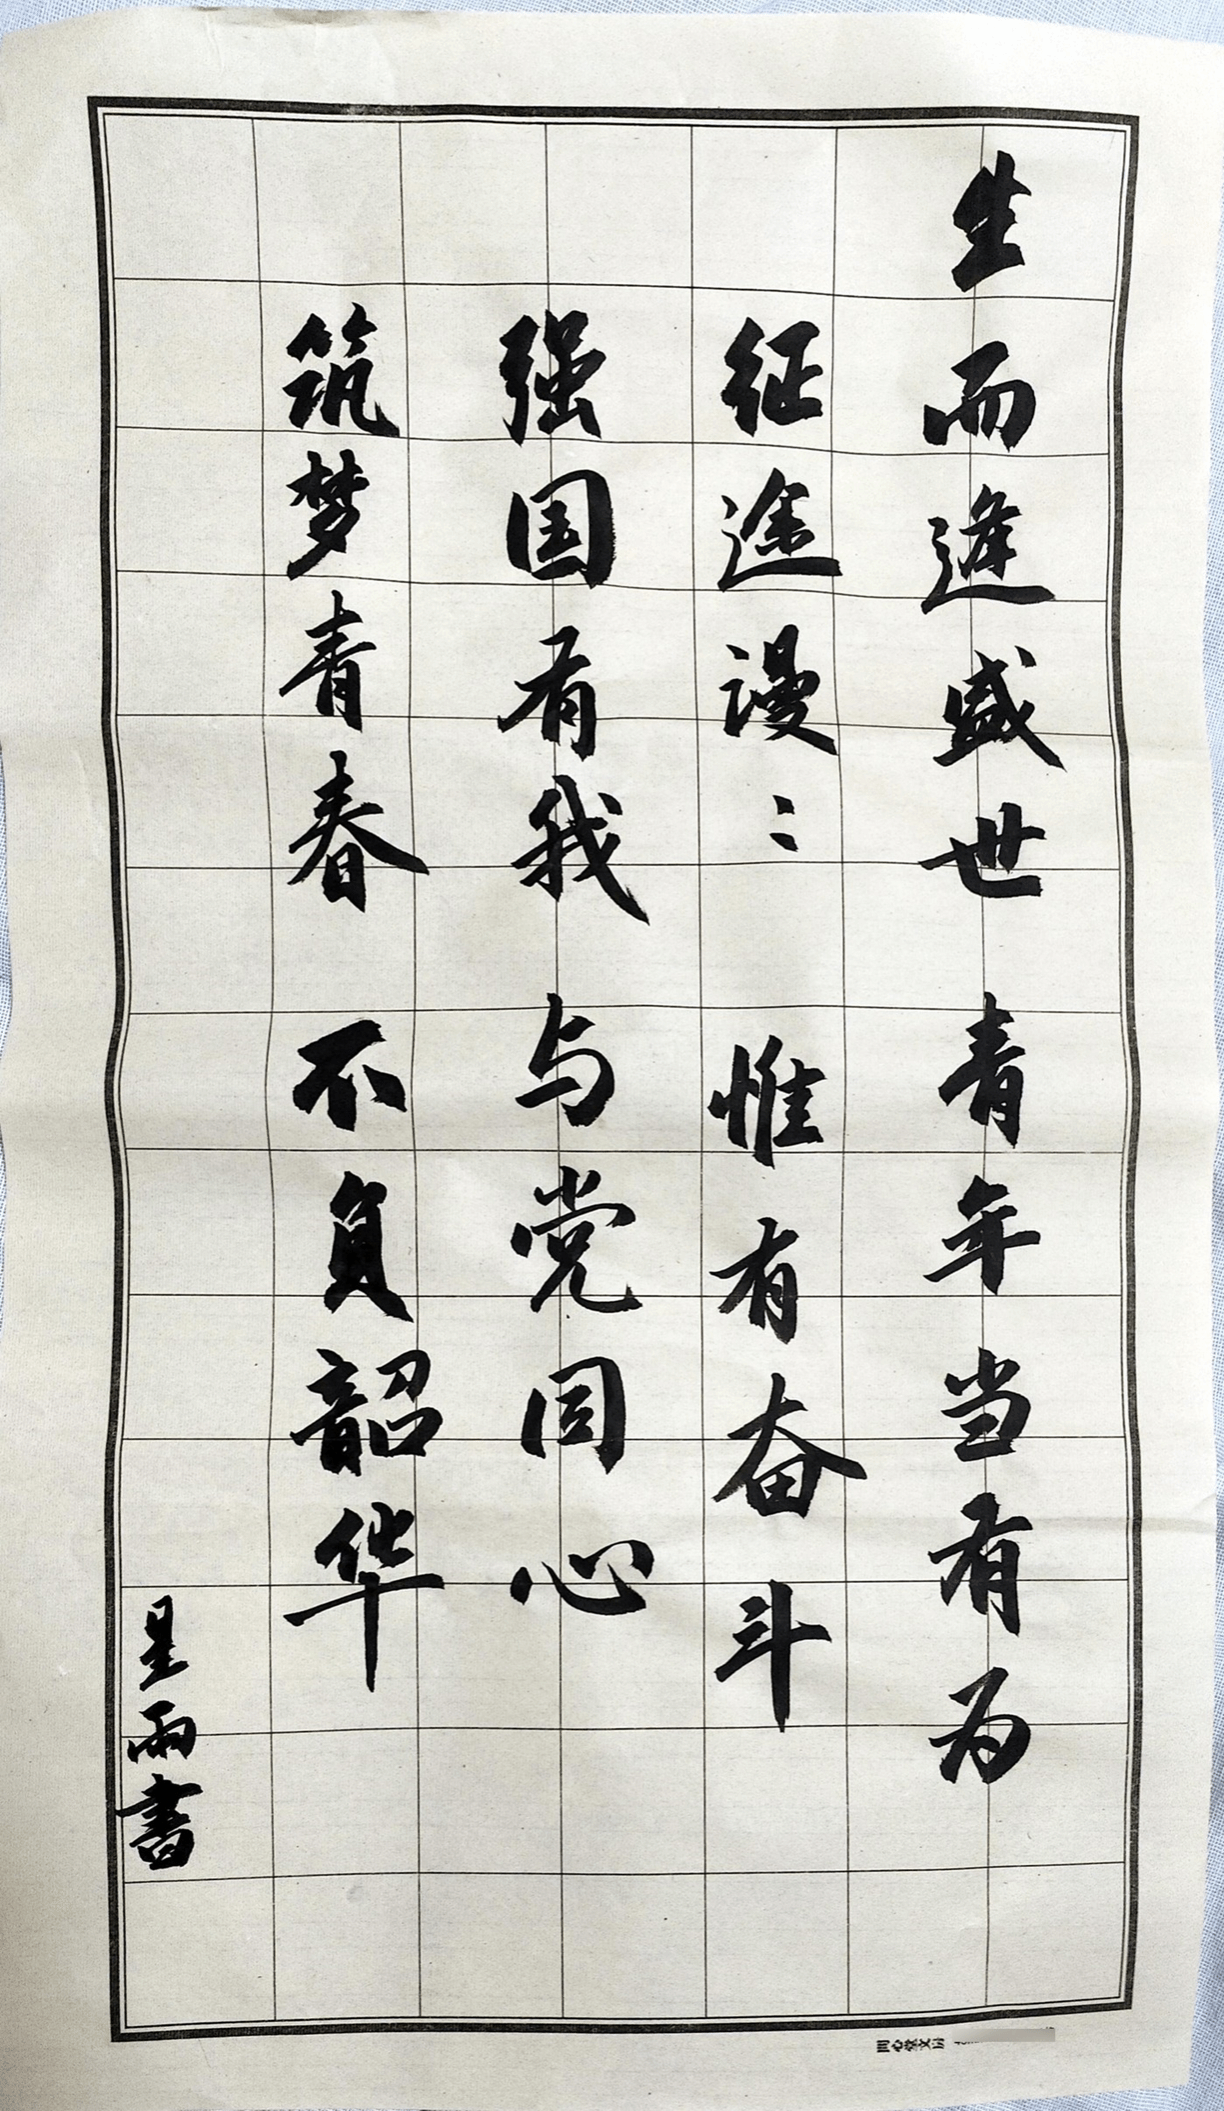 生而逢盛世 青年当有为
征途漫〻 惟有奋斗
强国有我 与党同心
筑梦青春 不负韶华
星雨書
同心堂文房